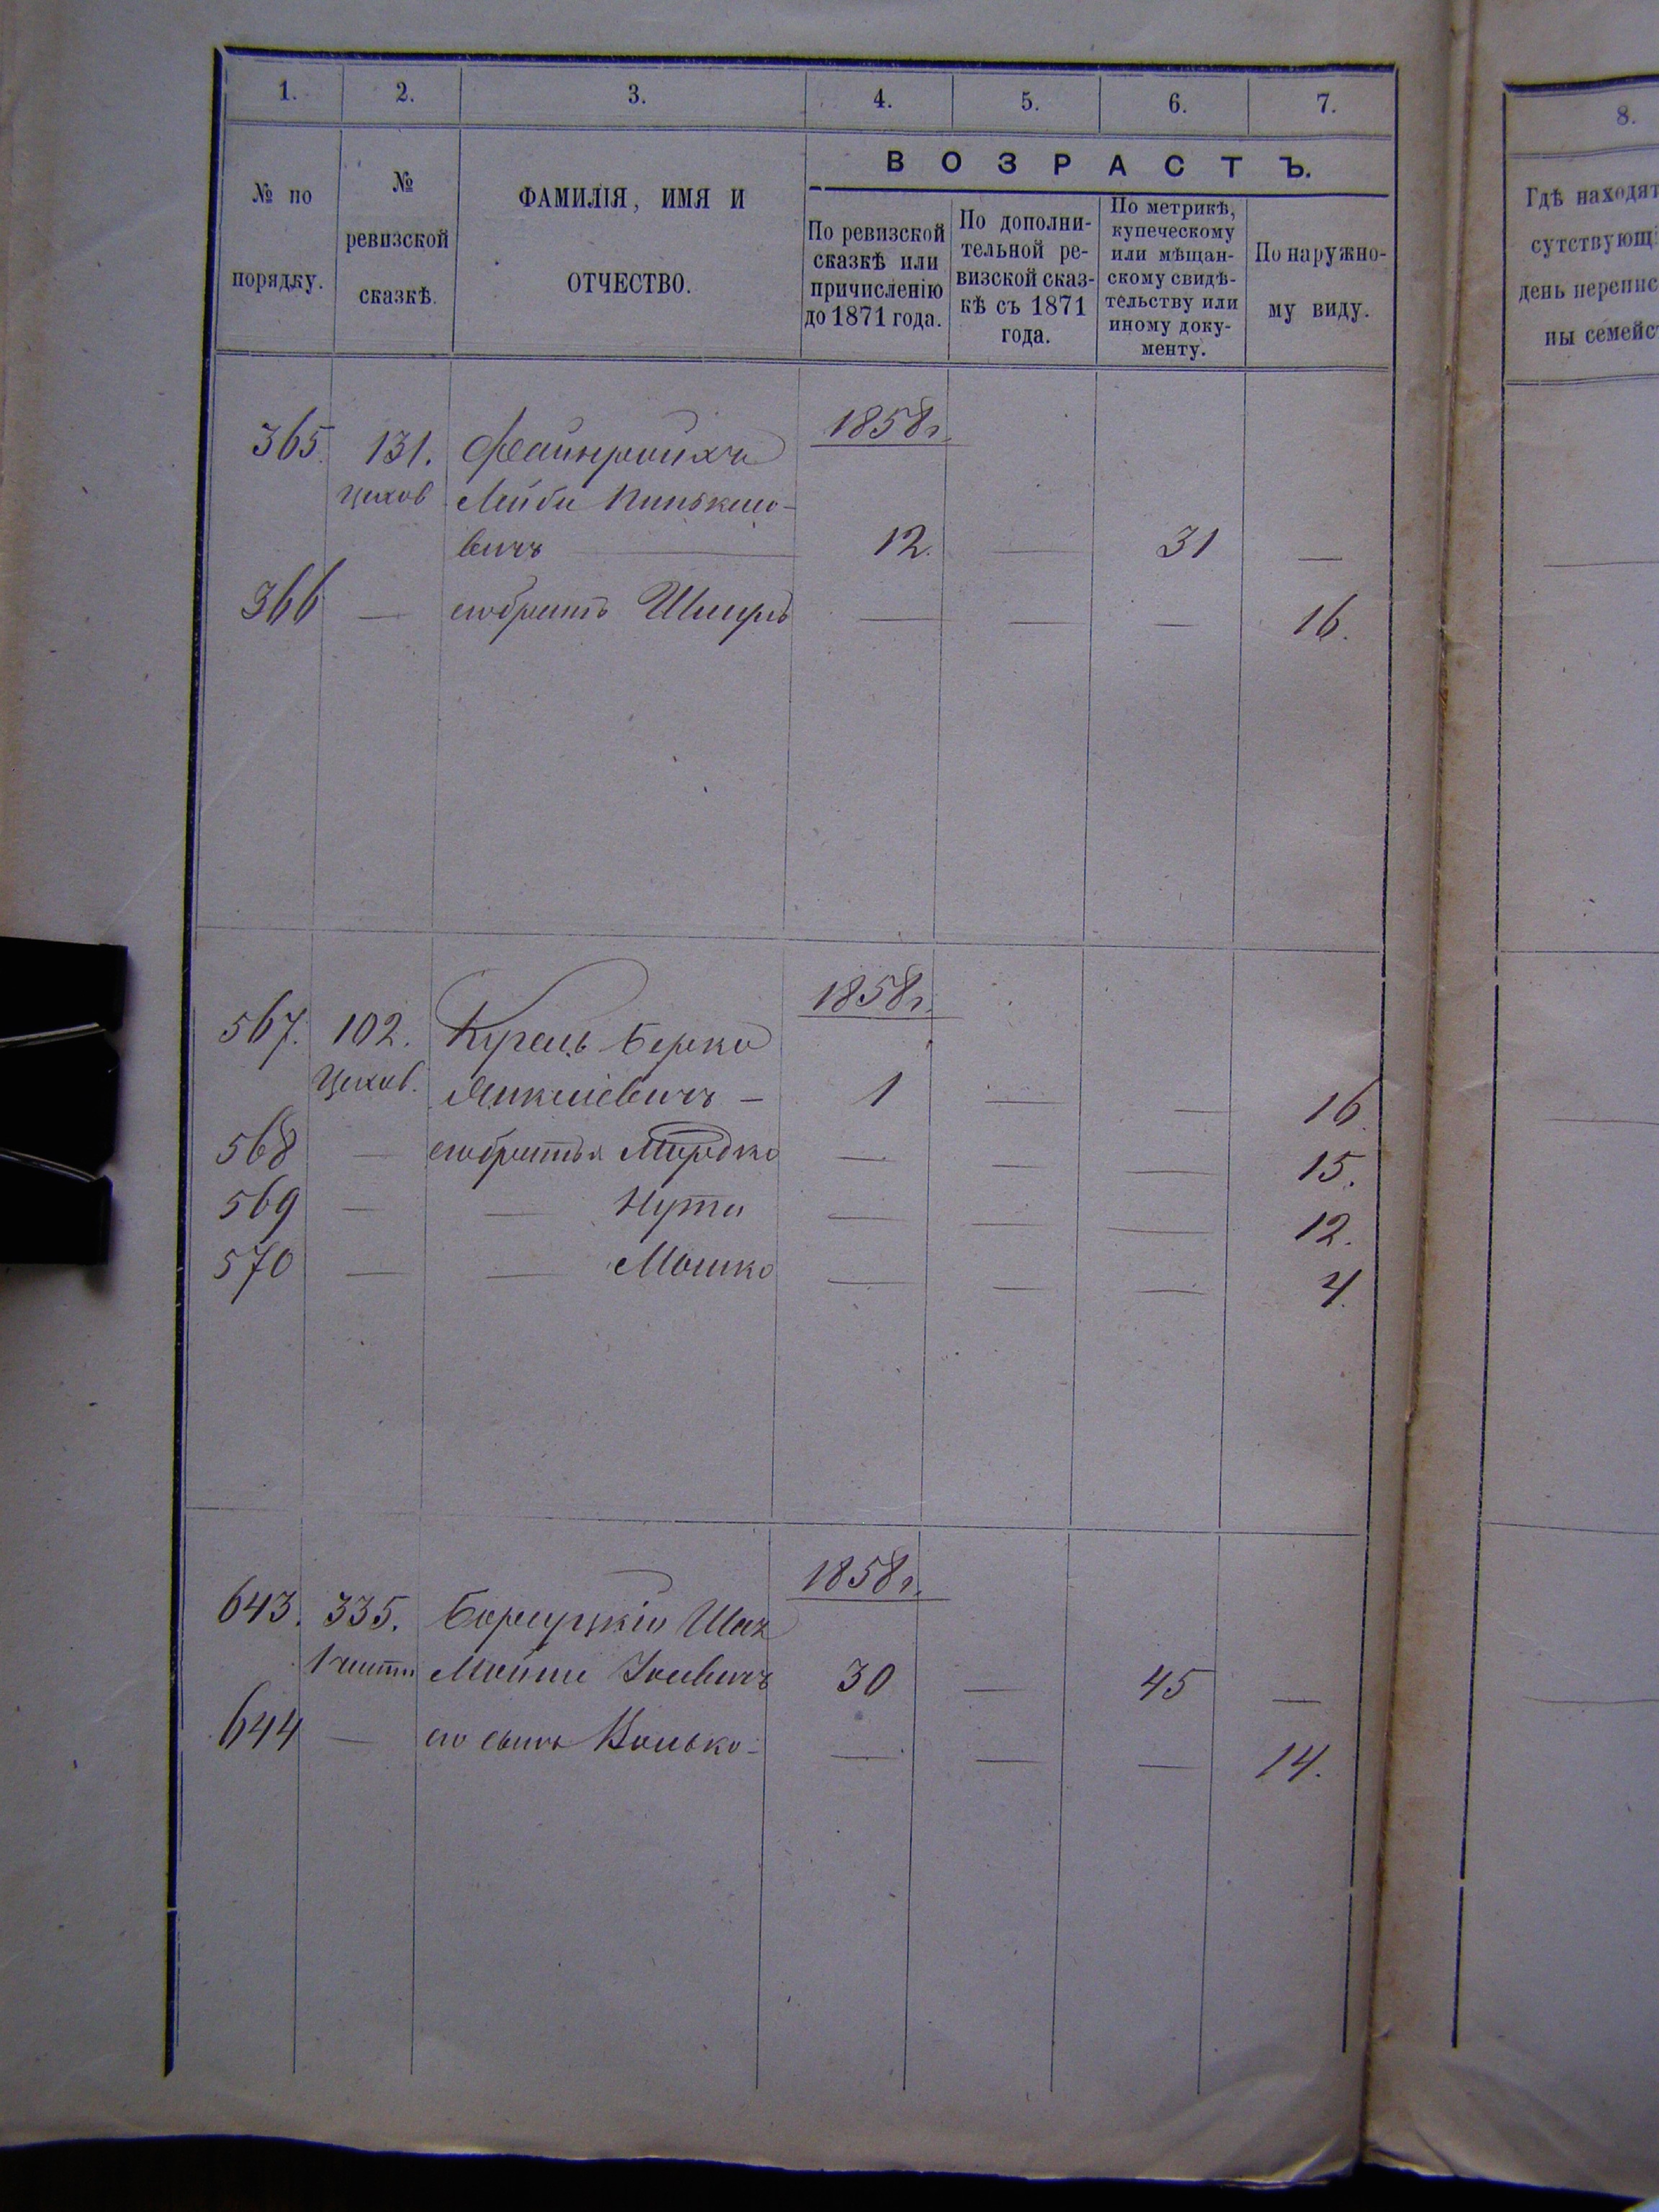 1. 2. 3. 4. 5. 6. 7.
№ по порядку.
№ ревизской сказкѣ.
ФАМИЛІЯ, ИМЯ И ОТЧЕСТВО.
ВОЗРАСТЪ.
По ревизской сказкѣ или причисленію до 1871 года.
По дополнительной ревизской сказкѣ съ 1871 года.
По метрикѣ, купеческому или мѣщанскому свидѣтельству или иному документу.
По наружному виду.
8.
Гдѣ находят
сутствующі
день перепис
ны семейс
1858 г.
365 131. Файнройхъ
Цехов Лейба Пинькасо-
вичъ 12. — 31 —
366 — его братъ — — — 16.
1858 г.
567. 102. Кугель Берко
Цехов. Янкелевичъ — 1 — — 16.
568 — его братья Мордко — — — 15.
569 — — Нута — — — 12.
570 — — Мошко — — — 4.
1858 г.
643. 335. Шая
Іосевичъ 30 — 45 —
644 — его сынъ — — — 14.